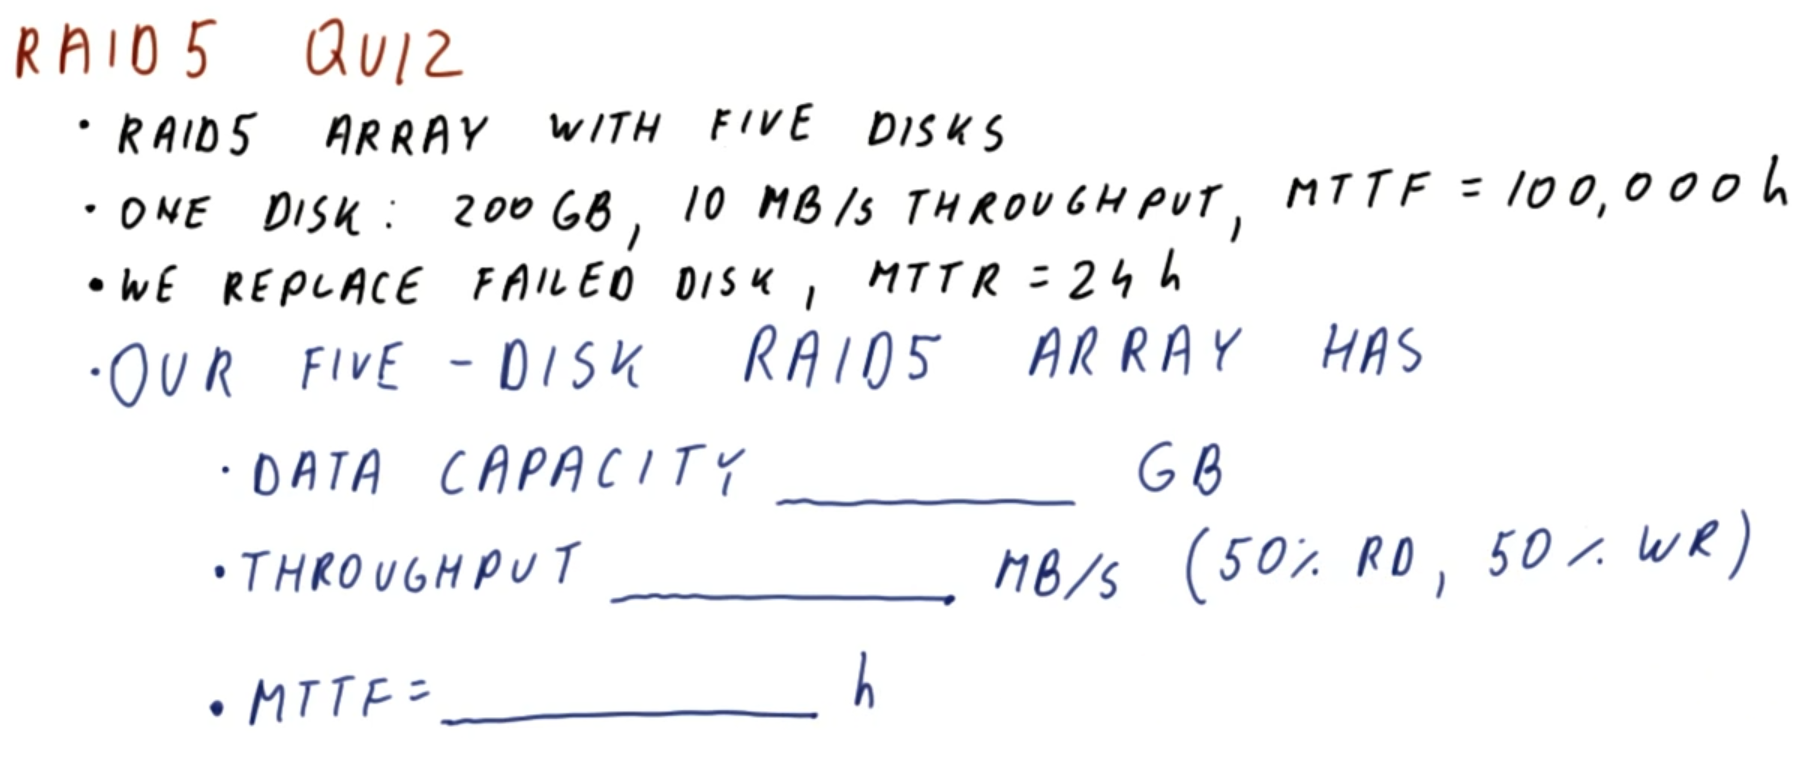 RAID5 QUIZ
• RAID5 ARRAY WITH FIVE DISKS
• ONE DISK: 200GB, 10 MB/s THROUGHPUT, MTTF = 100,000 h
• WE REPLACE FAILED DISK, MTTR = 24 h
• OUR FIVE-DISK RAID5 ARRAY HAS
• DATA CAPACITY ________ GB
• THROUGHPUT ________ MB/s (50% RD, 50% WR)
• MTTF = ________ h